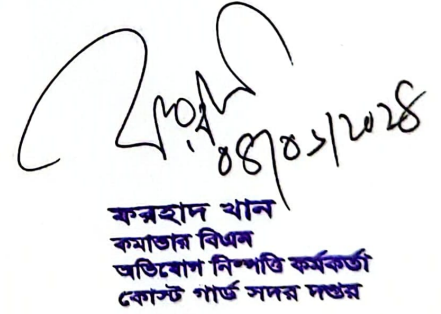 ০৪/০১/২০২৪
ফরহাদ খান
কমান্ডার বিএন
অভিযোগ নিষ্পত্তি কর্মকর্তা
কোস্ট গার্ড সদর দপ্তর